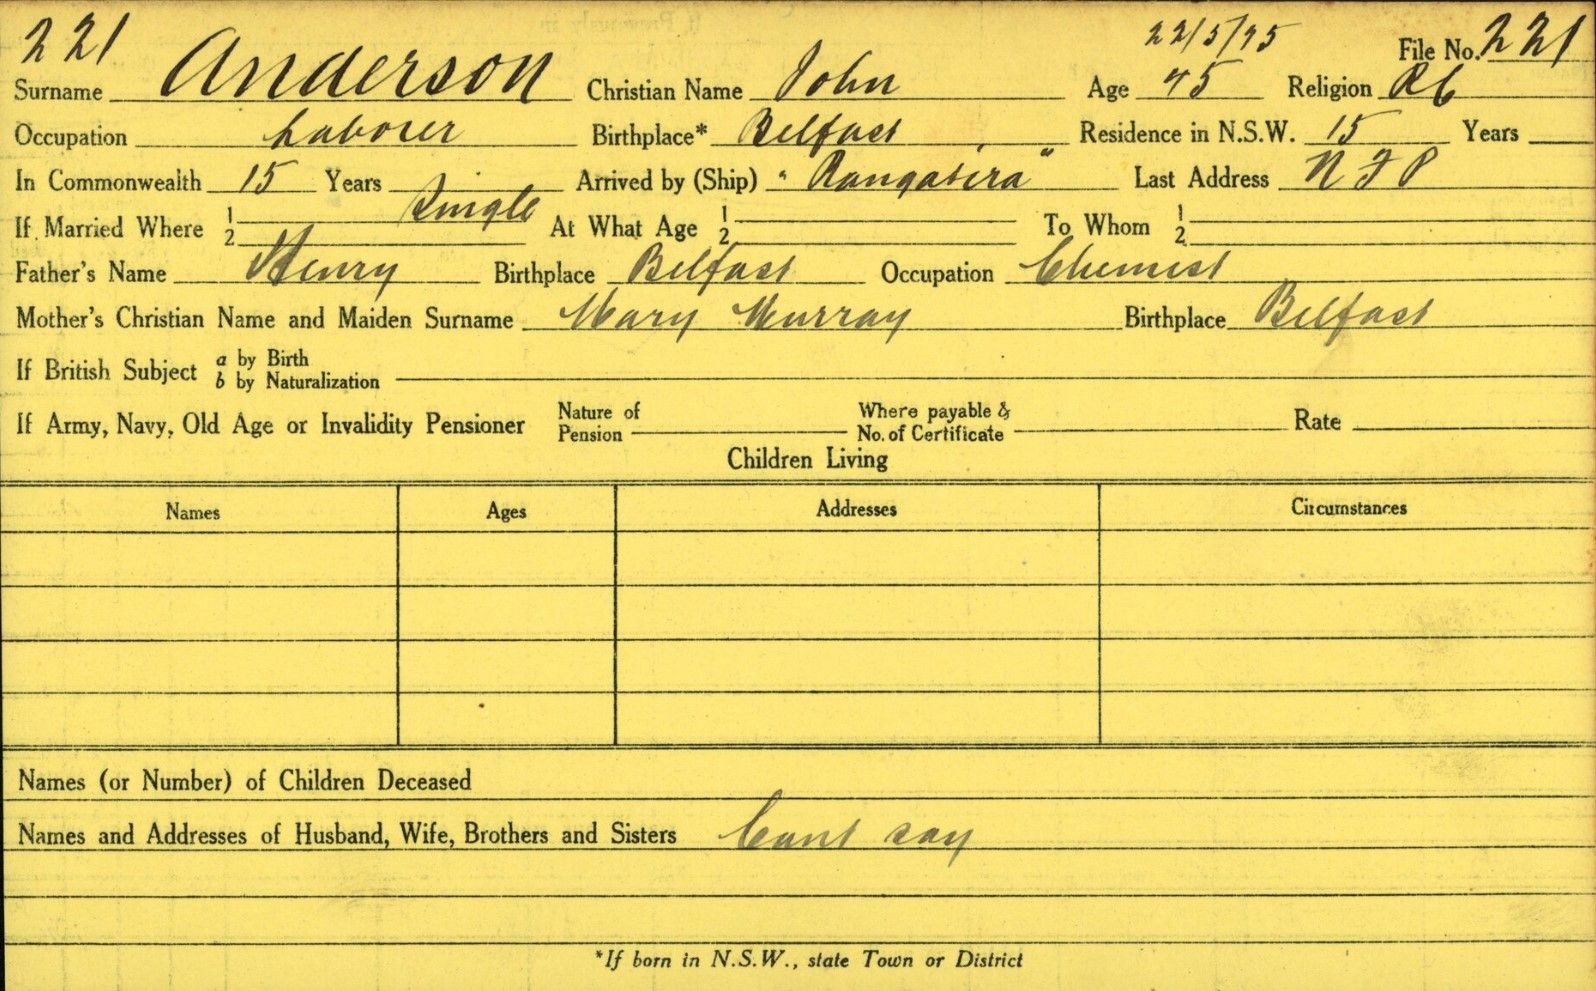 221 22/5/75 File No. 221
Surname Anderson Christian Name John Age 45 Religion RC
Occupation Laborer Birthplace* Belfast Residence in N.S.W. 15 Years
In Commonwealth 15 Years Arrived by (Ship) "Rangatira" Last Address N F P
Single
If Married Where 1 2 At What Age 1 2 To Whom 1 2
Father's Name Henry Birthplace Belfast Occupation Chemist
Mother's Christian Name and Maiden Surname Mary Murray Birthplace Belfast
If British Subject a by Birth
b by Naturalization
If Army, Navy, Old Age or Invalidity Pensioner Nature of Pension Where payable & No. of Certificate Rate
Children Living
Names Ages Addresses Circumstances
Names (or Number) of Children Deceased
Names and Addresses of Husband, Wife, Brothers and Sisters Cant say
*If born in N.S.W., state Town or District